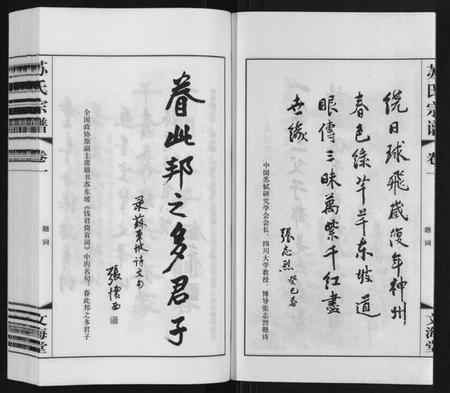 苏氏宗谱
卷一
题词
文海堂
绕日球飞岁复年神州
春色绿芊芊东坡道
眼傳三昧萬紫千红盡
世缘
张志烈 癸巳春
中国苏轼研究学会会长、四川大学教授、博导张志烈题诗
眷此邦之多君子
录苏东坡诗文句
張懷西
全国政协原副主席题书苏东坡《钱君倚哀词》中的名句:眷此邦之多君子
苏氏宗谱
卷一
题词
文海堂